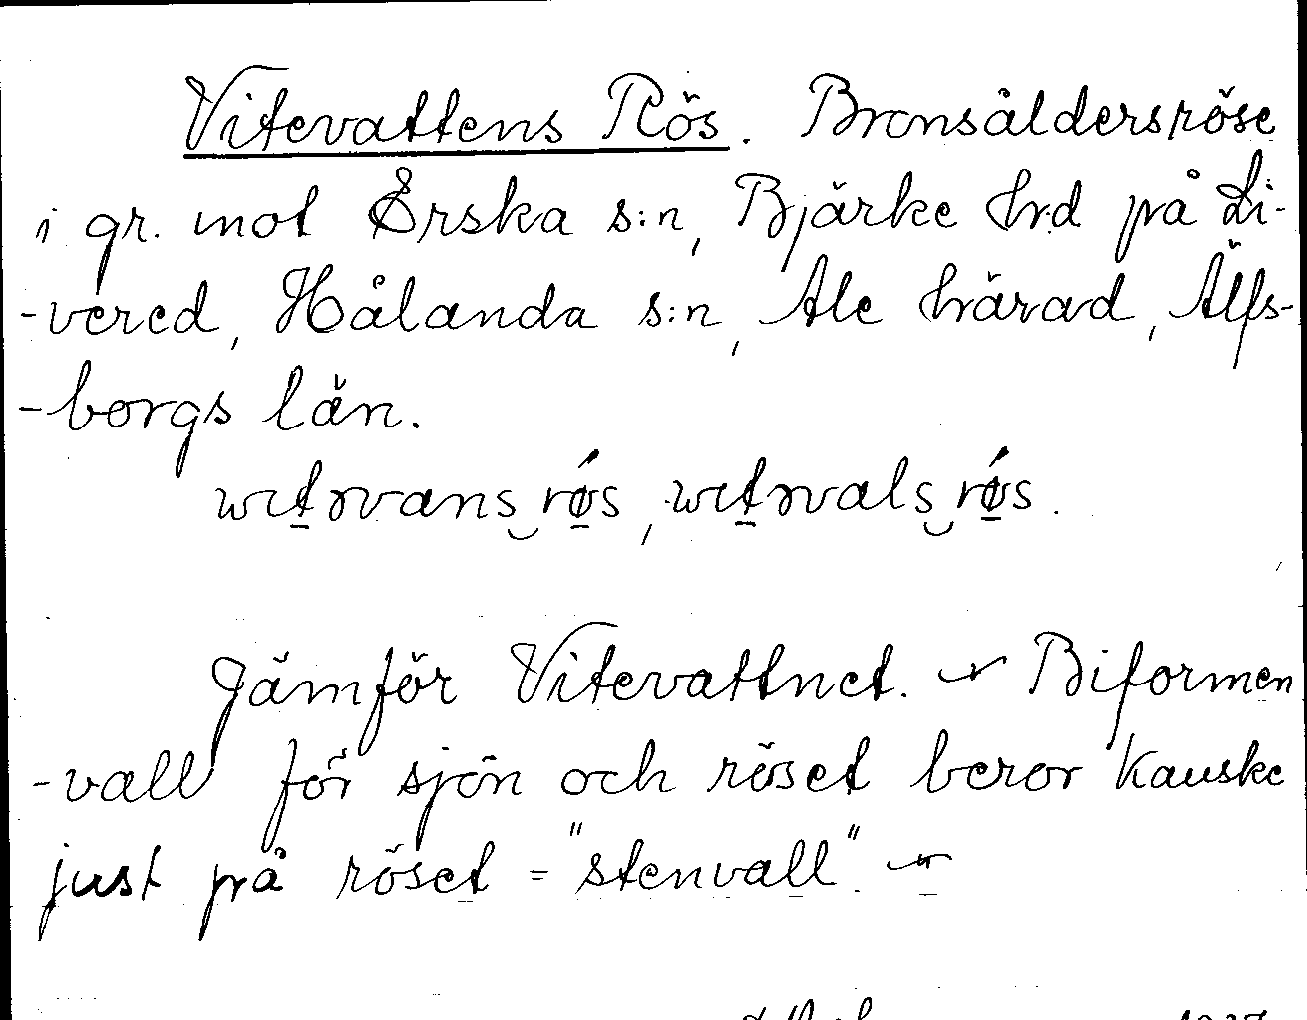 Vitevattens Rös. Bronsåldersröse
i gr. mot Erska s:n, Bjärke hrd på Li-
-vered, Hålanda s:n, Ale härad, Älfs-
-borgs län.
witrvans‿rǿs, witrvals‿rǿs.
Jämför Vitevattnet. Biformen
-vall för sjön och röset beror kanske
just på röset = "stenvall".